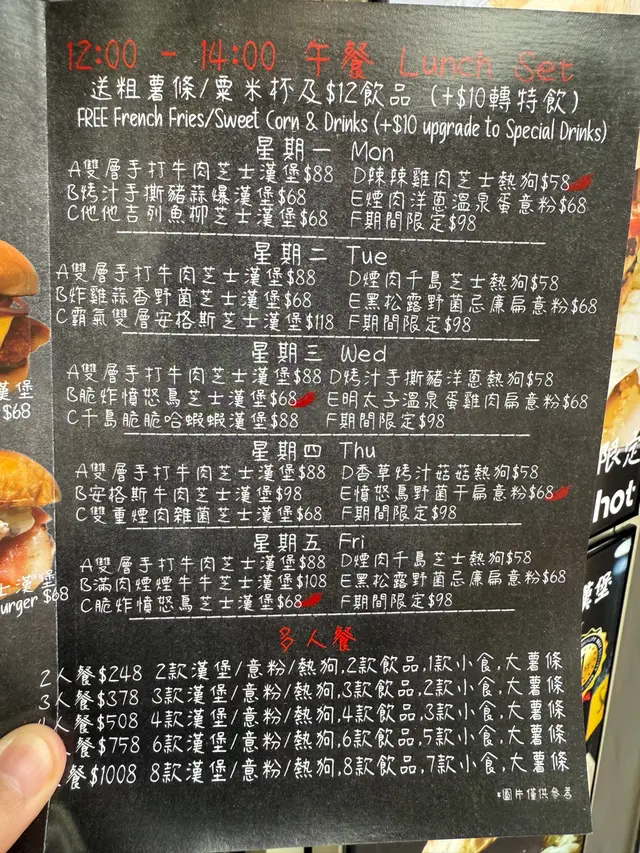 12:00 - 14:00 午餐 Lunch Set
送粗薯條/粟米杯及$12飲品 (+$10轉特飲)
FREE French Fries/Sweet Corn & Drinks (+$10 upgrade to Special Drinks)
星期一 Mon
A雙層手打牛肉芝士漢堡$88 D辣辣雞肉芝士熱狗$58
B烤汁手撕豬蒜爆漢堡$68 E煙肉洋蔥溫泉蛋意粉$68
C他他吉列魚柳芝士漢堡$68 F期間限定$98
星期二 Tue
A雙層手打牛肉芝士漢堡$88 D煙肉千島芝士熱狗$58
B炸雞蒜香野菌芝士漢堡$68 E黑松露野菌忌廉扁意粉$68
C霸氣雙層安格斯芝士漢堡$118 F期間限定$98
星期三 Wed
A雙層手打牛肉芝士漢堡$88 D烤汁手撕豬洋蔥熱狗$58
B脆炸憤怒鳥芝士漢堡$68 E明太子溫泉蛋雞肉扁意粉$68
C千島脆脆哈蝦蝦漢堡$88 F期間限定$98
星期四 Thu
A雙層手打牛肉芝士漢堡$88 D香草烤汁菇菇熱狗$58
B安格斯牛肉芝士漢堡$98 E憤怒鳥野菌干扁意粉$68
C雙重煙肉雜菌芝士漢堡$68 F期間限定$98
星期五 Fri
A雙層手打牛肉芝士漢堡$88 D煙肉千島芝士熱狗$58
B滿肉煙煙牛牛芝士漢堡$108 E黑松露野菌忌廉扁意粉$68
C脆炸憤怒鳥芝士漢堡$68 F期間限定$98
多人餐
2人餐$248 2款漢堡/意粉/熱狗,2款飲品,1款小食,大薯條
3人餐$378 3款漢堡/意粉/熱狗,3款飲品,2款小食,大薯條
4人餐$508 4款漢堡/意粉/熱狗,4款飲品,3款小食,大薯條
餐$758 6款漢堡/意粉/熱狗,6款飲品,5款小食,大薯條
餐$1008 8款漢堡/意粉/熱狗,8款飲品,7款小食,大薯條
*圖片僅供參考
漢堡
$68
士漢堡
urger $68
限定
hot
漢堡